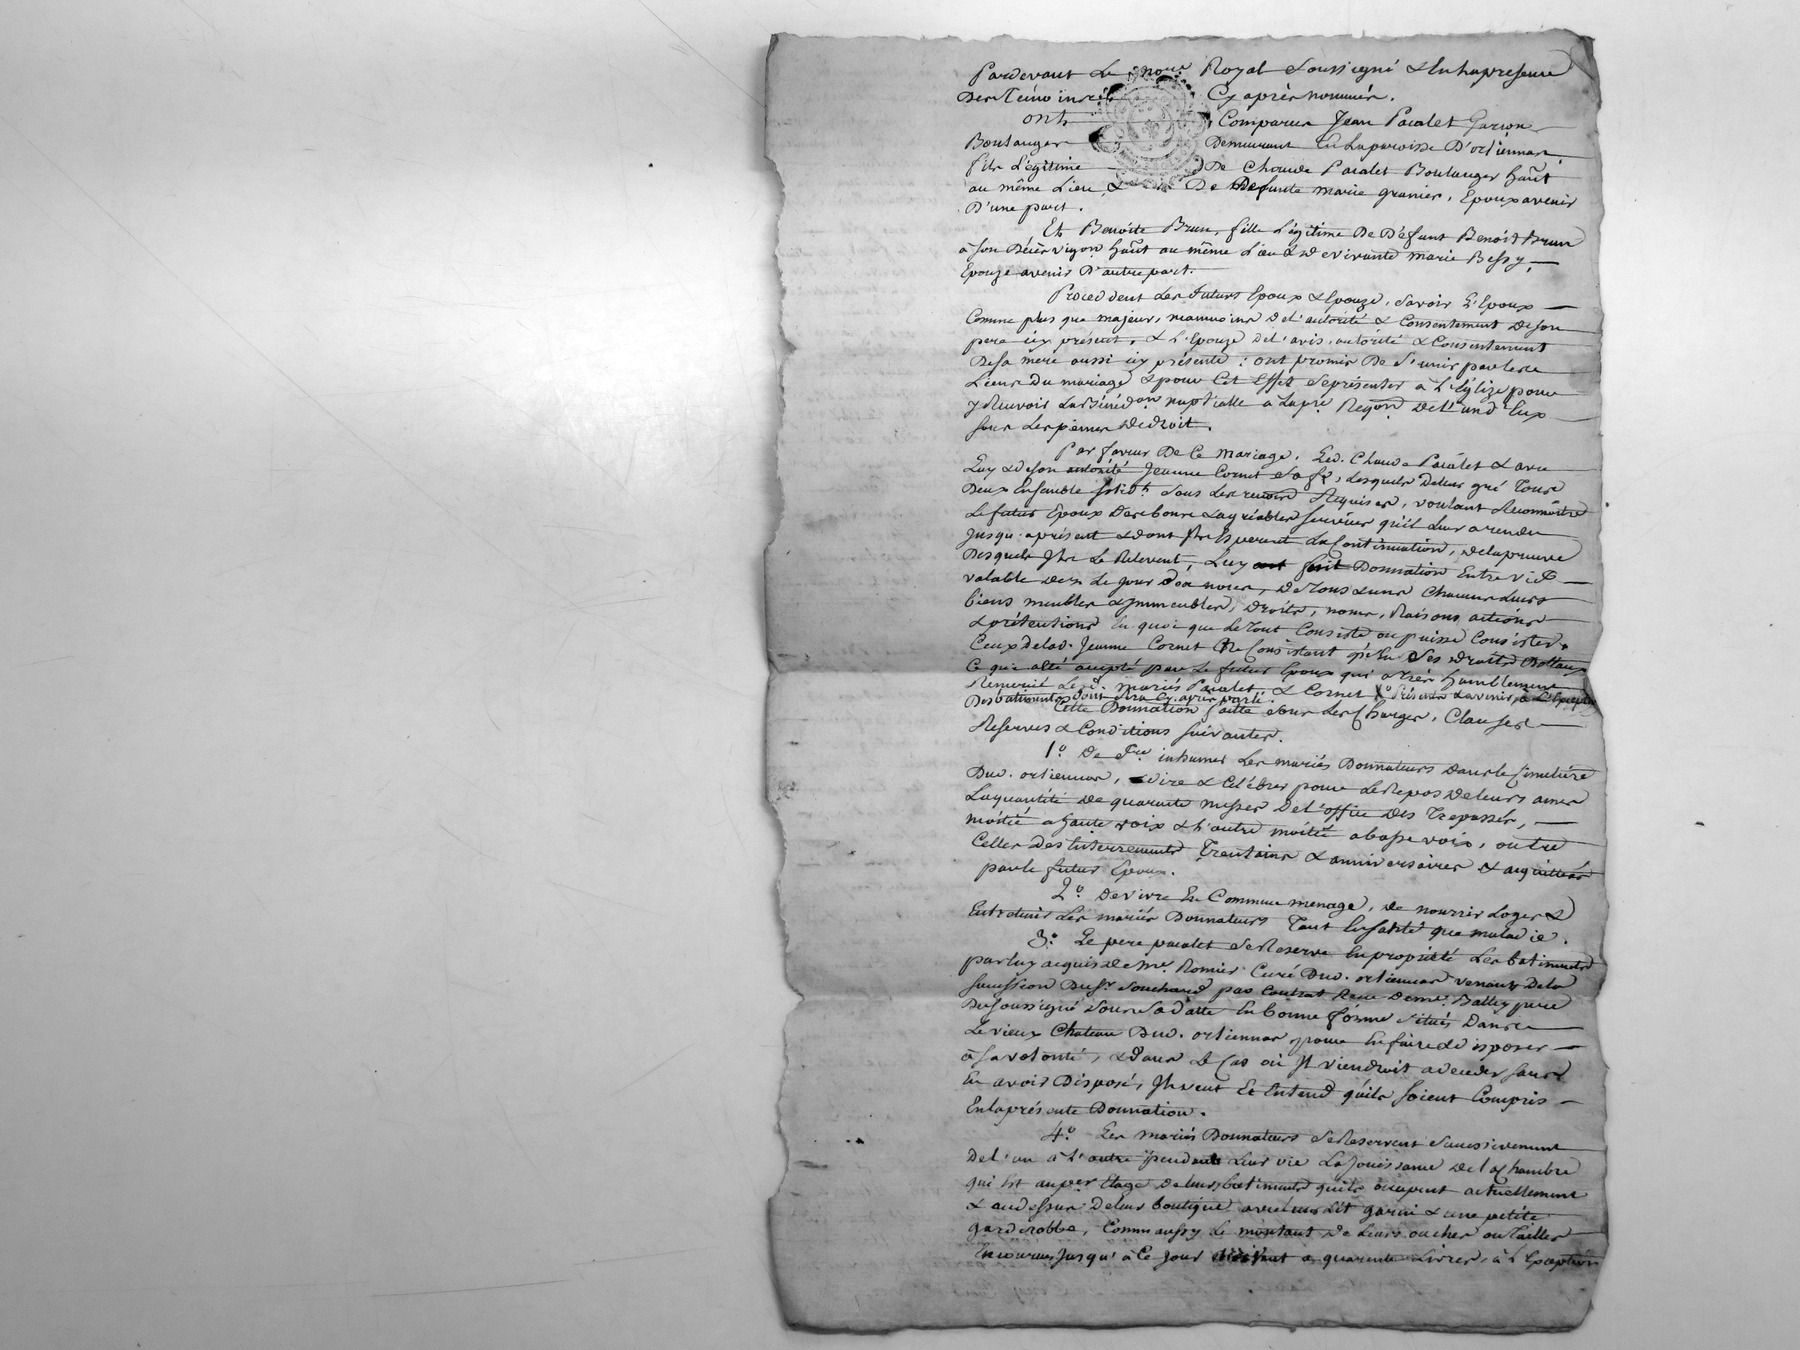 Pardevant Le no.re Royal Soussigné & En la presence
Des Temoins Cy après nommés.
ont Comparus Jean Pacalet Garçon
Boulanger Demeurant En la paroisse D'ortiennas
fils Légitime De Claude Pacalet Boulanger hañt
au même Lieu & De Defunte marie granier, Epoux avenir
D'une part.
Et Benoite Brun, fille Légitime De Défunt Benoit Brun
à son Décès vigon hañt au même Lieu & De vivante marie Bessy,
Epouze avenir D'autre part.
Procedent Les futurs Epoux & Epouze, savoir L'Epoux
Comme plus que majeur, neanmoins De l'autorité & Consentement De son
pere icy présent, & L'Epouze De l'avis, autorité & Consentement
De sa mere aussi icy présente ; ont promis De S'unir par les
Liens Du mariage & pour Cet Effet Se présenter à L'Eglize pour
y Recevoir La Bénédon nuptialle à La pre Reqon De l'un d'Eux
sous Les peines De droit.
Par faveur De Ce mariage, Led. Claude Pacalet & avec
Luy & De son autorité Jeanne Cornet sa fe, Lesquels De leur gré Tous
Deux Ensemble solidt Sous Les renons Requises, voulant Reconnoitre
Le futur Epoux Des bons & agréables services qu'il Leur a rendu
Jusqu'aprésent & dont Ils Esperent La Continuation, De la preuve
Desquels Ils Le Relevent, Luy ont fait Donnation Entre vifs
valable Dez Le jour D'a nous, De Tous & uns Chacuns Leurs
biens meubles & Immeubles, Droits, noms, Raisons, actions
& prétentions En quoi que Le Tout Consiste ou puisse Consister,
Ceux De lad. Jeanne Cornet Ne Consistant qu'En Ses Droits Dottaux
Ce qui a été accepté par Le futur Epoux qui a très humblement
Remercié Les d. mariés Pacalet & Cornet X présents & avenir, à L'Exception
Des batiments Dont sera Cy après parlé.
Cette Donnation faitte Sous Les Charges, Clauses
Reserves & Conditions suivantes.
1.° De fre inhumer Les mariés Donnateurs Dans le Cimetiére
Dud. ortiennas, Dire & Célébrer pour Le Repos De leurs ames
La quantité De quarante messes De l'office Des Trepassés,
moitié a haute voix & L'autre moitié a basse voix, outre
Celles Des Enterrements Trentains & anniversaires & acquittées
par le futur Epoux.
2.° De vivre En Commun menage, De nourrir Loger &
Entretenir Les mariés Donnateurs Tant En Santé que maladie.
3.° Le pere pacalet Se Reserve En propriété Les batiments
par luy acquis De Mre Romier Curé Dud. ortiennas venants De la
succession Du Sr Souchard par Contrat Recu De me Balley pere
Du soussigné Sous Sa Datte En bonne forme Situés Dans
Le vieux Chateau Dud. ortiennas pour En faire & disposer
à Sa volonté, & Dans Le Cas où Il viendroit a deceder sans
En avoir Disposé, Il veut Et Entend qu'ils soient Compris
En la présente Donnation.
4.° Les mariés Donnateurs Se Reservent Successivement
De l'un à L'autre pendant Leur vie La Jouissance De la Chambre
qui Est au per Etage De leurs batiments qu'ils occupent actuellement
& au dessus De leur boutique avec un Lit garni & une petite
garderobbe, Comme aussy Le montant De Leurs oches ou Tailles
Encourues Jusqu'à Ce jour a quarente Livres, à L'Exception